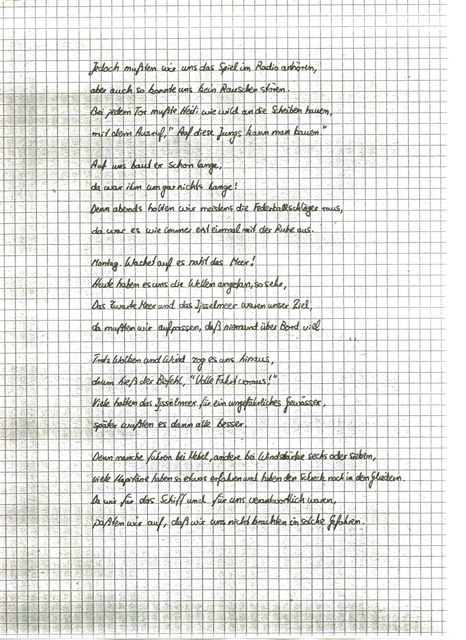 Jedoch mußten wir uns das Spiel im Radio anhören,
aber auch so konnte uns kein Rauschen stören.
Bei jedem Tor mußte Heiti wie wild an die Scheiben hauen,
mit dem Ausruf, "Auf diese Jungs kann man bauen"
Auf uns baut er schon lange,
da war ihm um gar nichts bange!
Denn abends holten wir meistens die Federballschläger raus,
da war es wie immer erst einmal mit der Ruhe aus.
Montag. Wachet auf es naht das Meer!
Heute haben es uns die Wellen angetan, so sehr,
Das Meer und das Ijsselmeer waren unser Ziel,
da mußten wir aufpassen, daß niemand über Bord viel.
Trotz Wolken und Wind zog es uns hinaus,
drum hieß der Befehl, "Volle Fahrt voraus!"
Viele halten das Ijsselmeer für ein ungefährliches Gewässer,
später wußten es dann alle besser
Denn manche fuhren bei Nebel, andere bei Windstärke sechs oder sieben,
viele Kapitäne haben so etwas erfahren und haben den Schreck noch in den Gliedern.
Da wir für das Schiff und für uns verantwortlich waren,
paßten wir auf, daß wir uns nicht brachten in solche Gefahren.